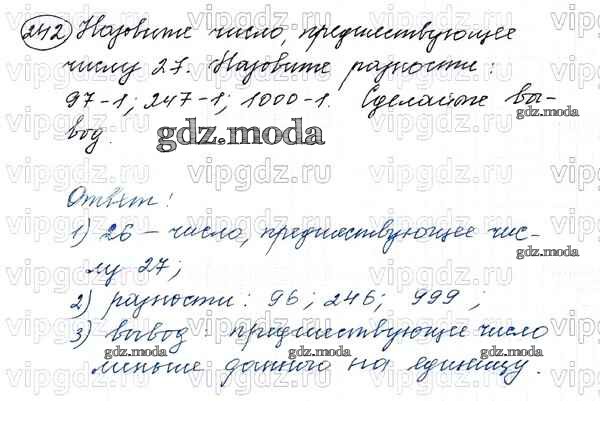 242 Назовите число, предшествующее
числу 27. Назовите разности:
97-1; 247-1; 1000-1. Сделайте вы-
вод.
gdz.moda
Ответ:
1) 26 – число, предшествующее чис-
лу 27;
2) разности: 96; 246; 999;
3) вывод: предшествующее число
меньше данного на единицу.